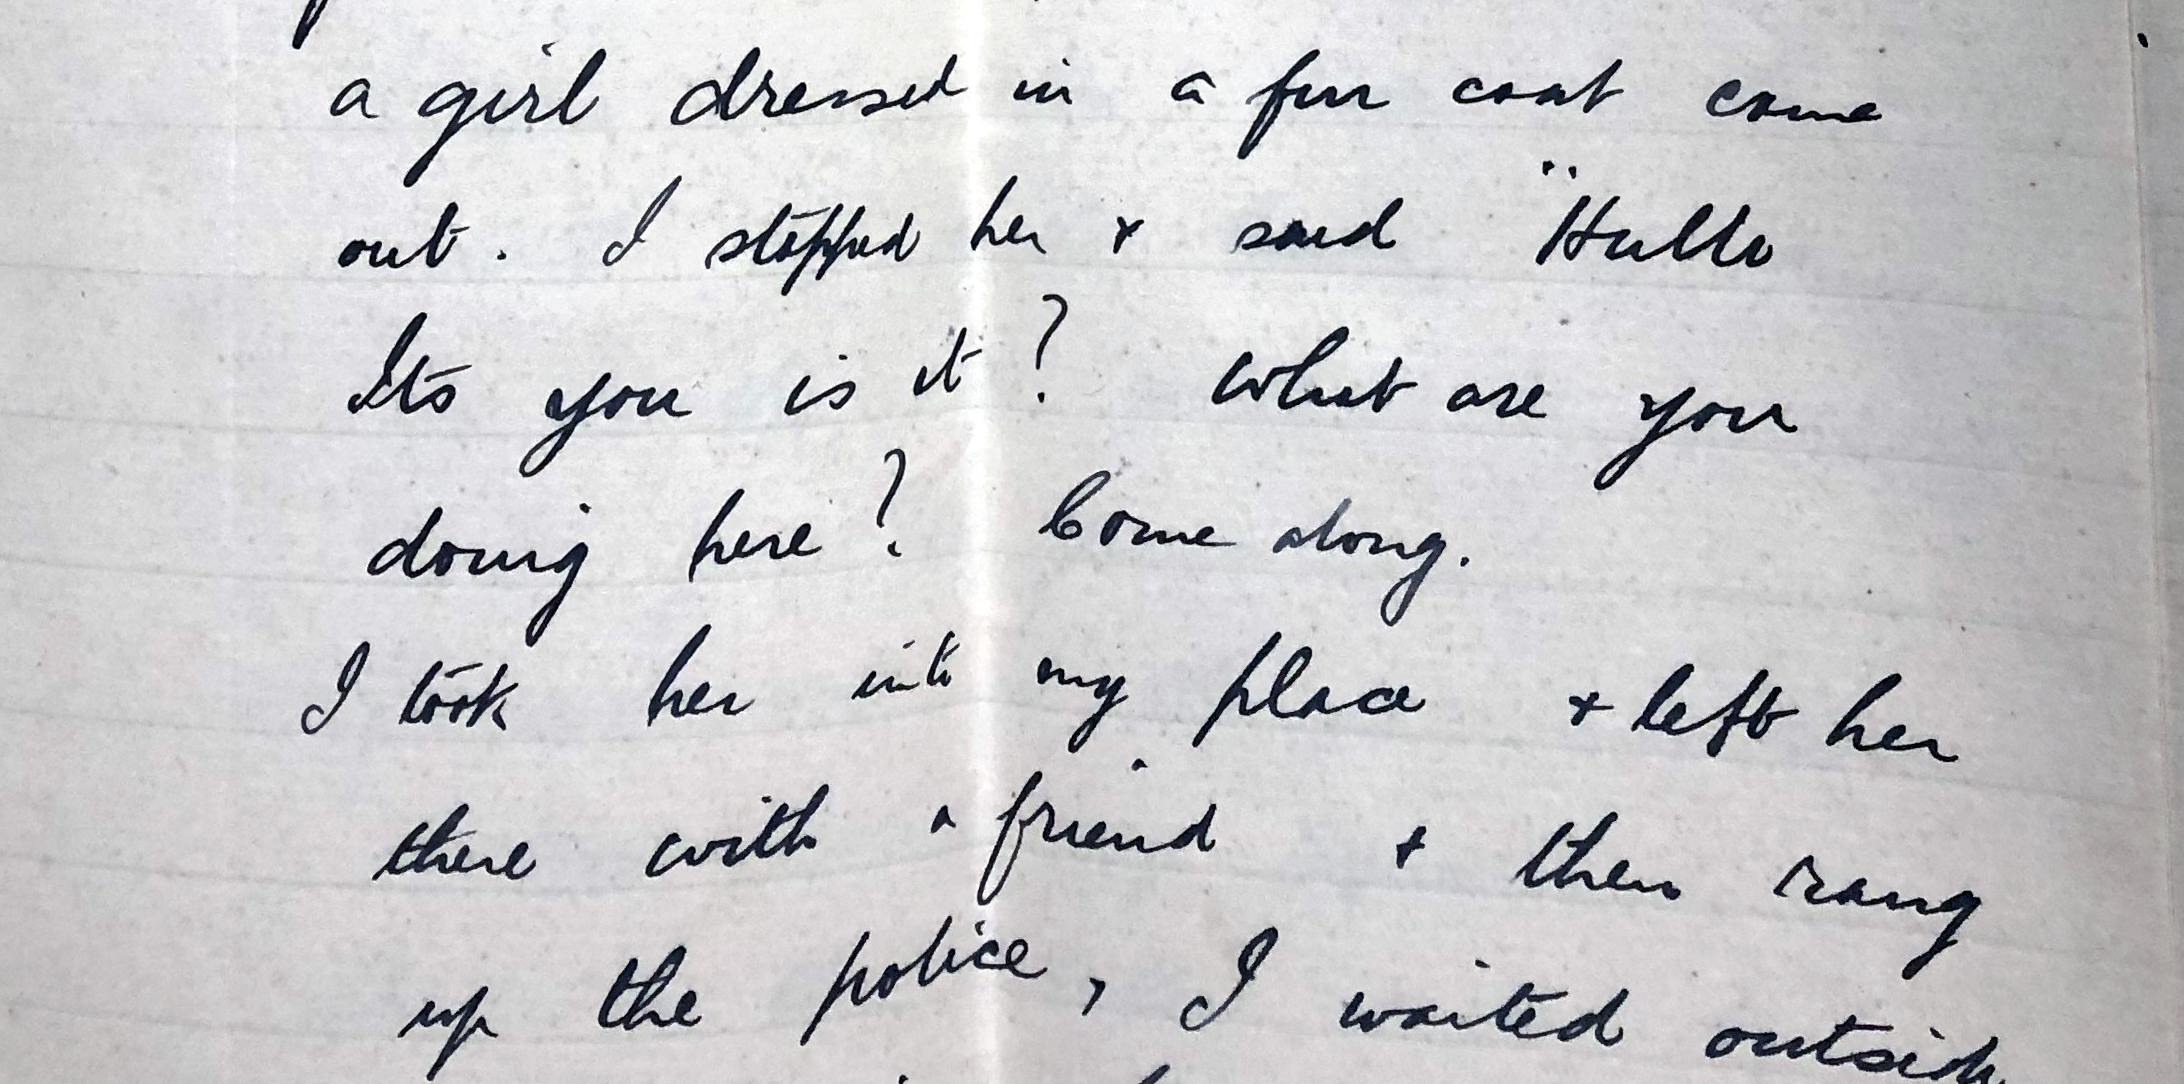 a girl dressed in a fur coat come
out. I stopped her + said "Hullo
Its you is it? What are you
doing here? Come along.
I took her into my place + left her
there with a friend + then rang
up the police, I waited outside